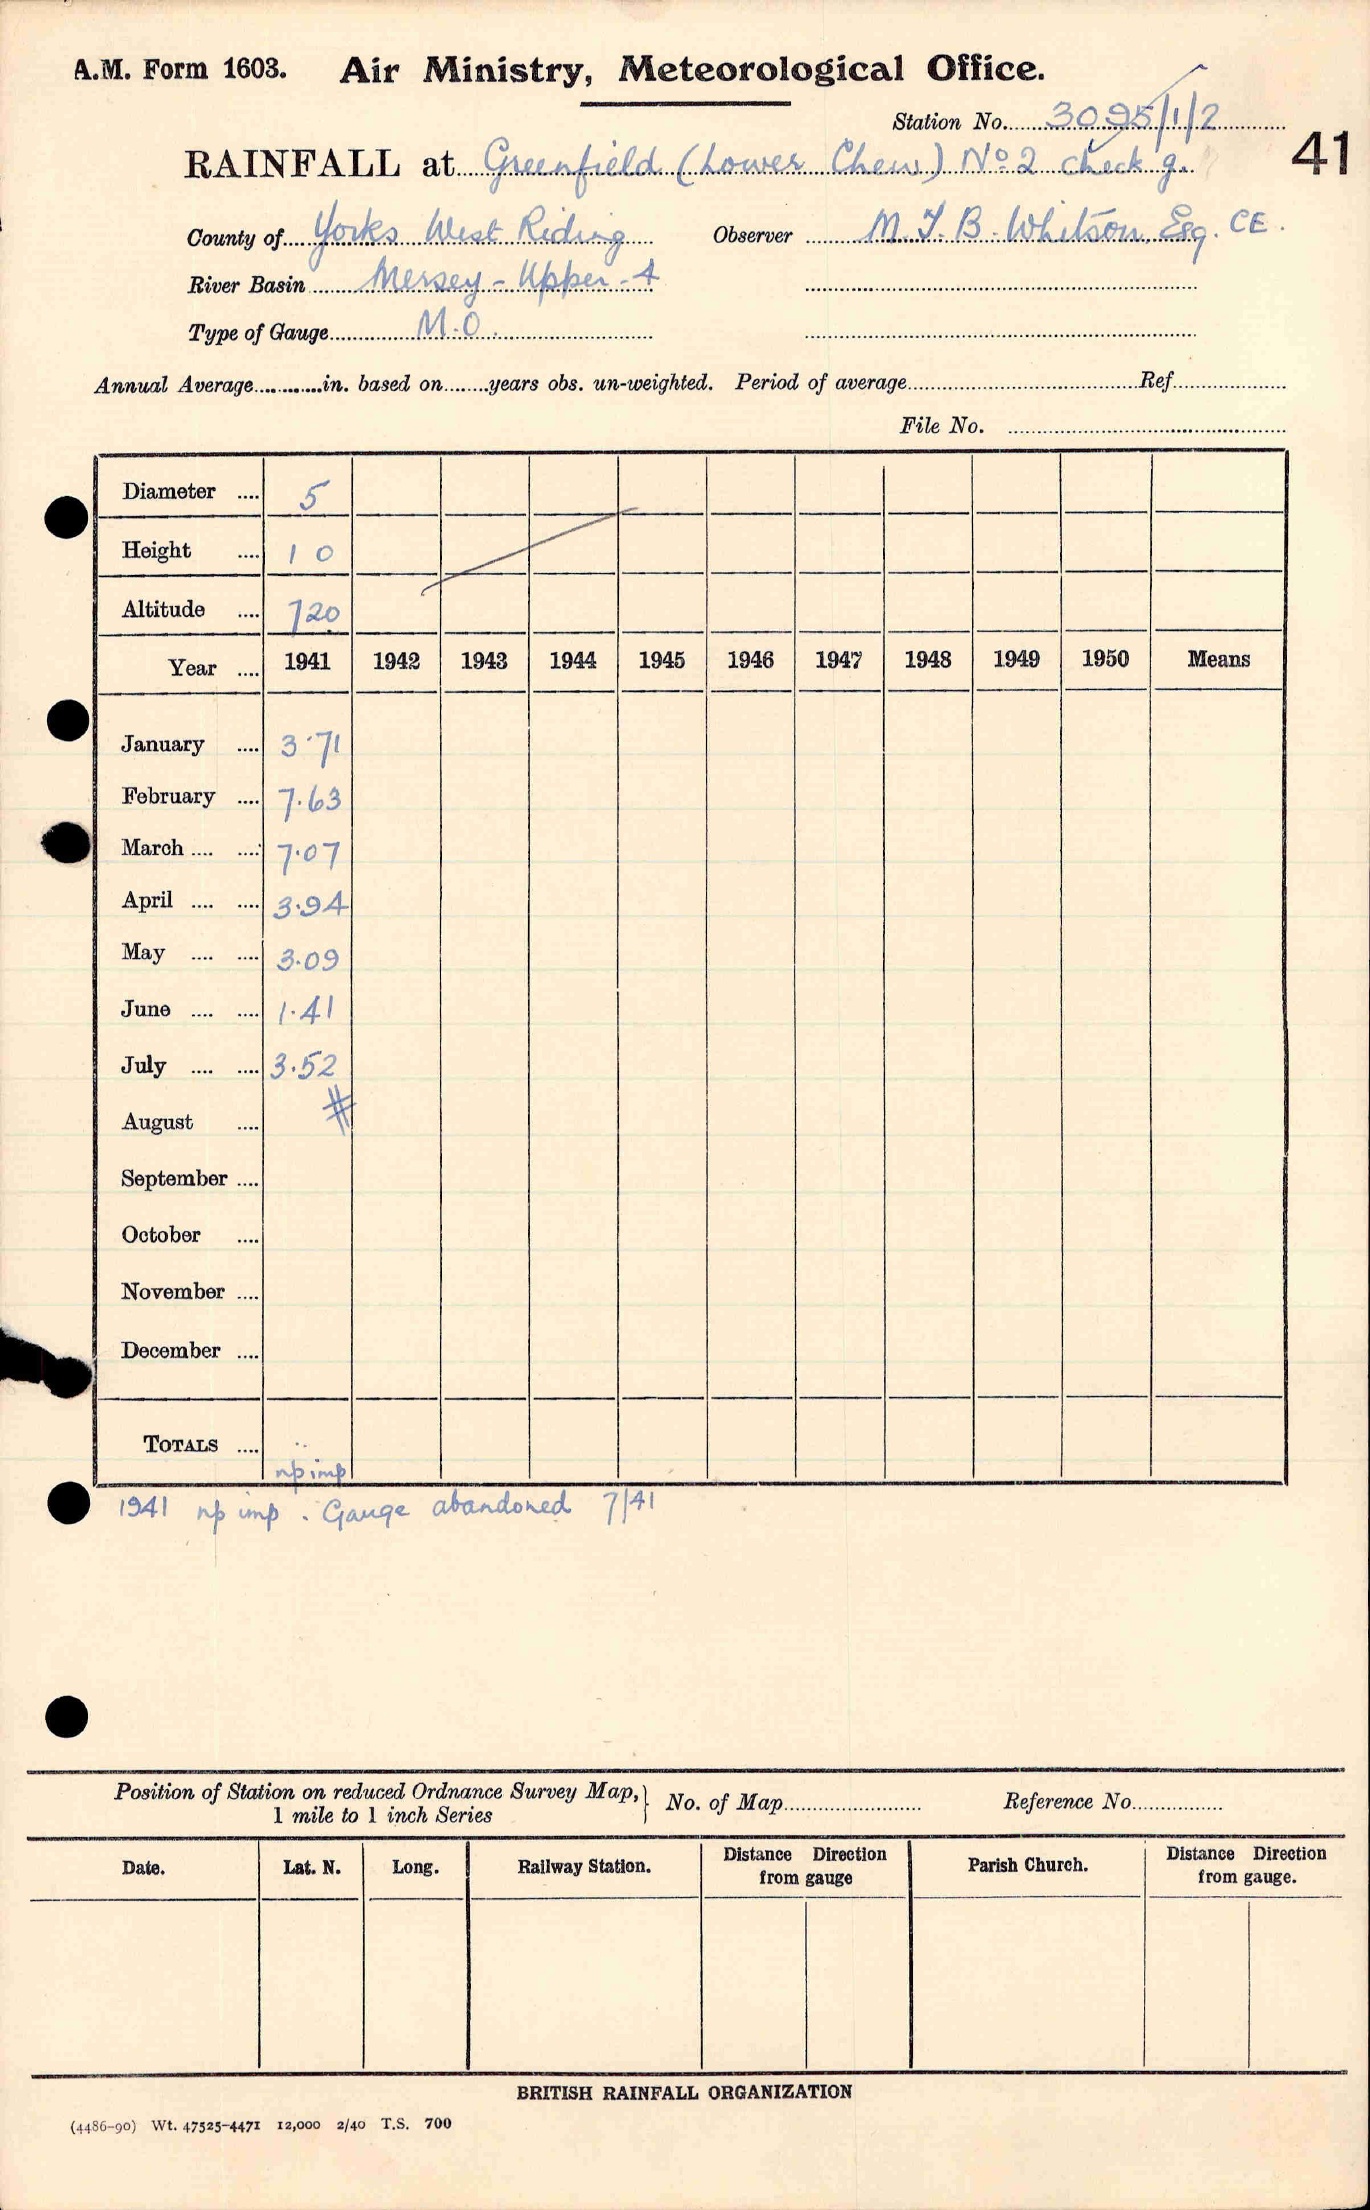 A.M. Form 1603. Air Ministry, Meteorological Office.
Station No. 3095/1/2
41
RAINFALL at Greenfield (Lower Chew) No 2 check g.
County of Yorks West Riding Observer M. J. B. Whitson Esq. CE.
River Basin Mersey - Upper - 4
Type of Gauge M.O.
Annual Average............in. based on........years obs. un-weighted. Period of average Ref
File No.
Diameter .... 5
Height .... 1 0
Altitude .... 720
Year .... 1941 1942 1943 1944 1945 1946 1947 1948 1949 1950 Means
January .... 3.71
February .... 7.63
March .... .... 7.07
April .... .... 3.94
May .... .... 3.09
June .... .... 1.41
July .... .... 3.52
August .... #
September ....
October ....
November ....
December ....
TOTALS .... ..
np imp
1941 np imp. Gauge abandoned 7/41
Position of Station on reduced Ordnance Survey Map, } No. of Map Reference No.
1 mile to 1 inch Series
Date. Lat. N. Long. Railway Station. Distance Direction from gauge Parish Church. Distance Direction from gauge.
BRITISH RAINFALL ORGANIZATION
(4486-90) Wt. 47525-4471 12,000 2/40 T.S. 700